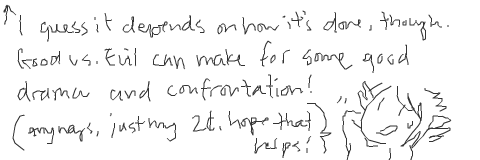 ↑ I guess it depends on how it's done, though.
Good vs. Evil can make for some good
drama and confrontation!
(anyways, just my 2¢. hope that
helps!